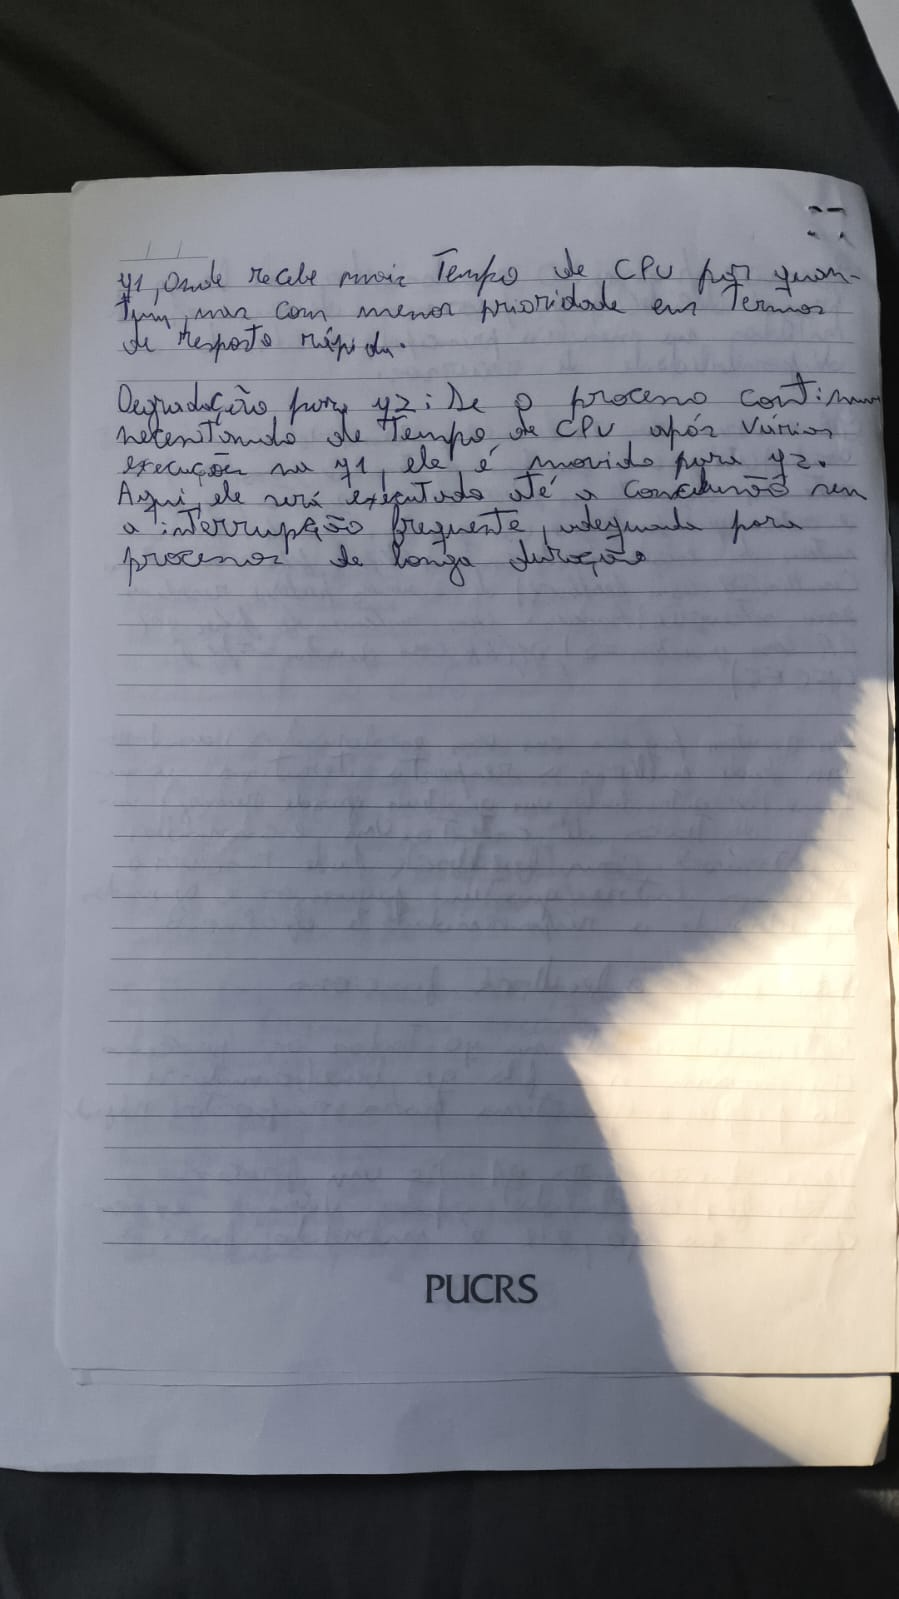 y1, onde recebe mais Tempo de CPU por quan-
tum, mas com menor prioridade em Termos
de resposta rápida.
Degradação para y2: Se o processo continua
necessitando de Tempo de CPU após vários
execuções na y1, ele é movido para y2.
Aqui, ele será executado até a Conclusão sem
a interrupção frequente, adequada para
processos de longa duração
PUCRS